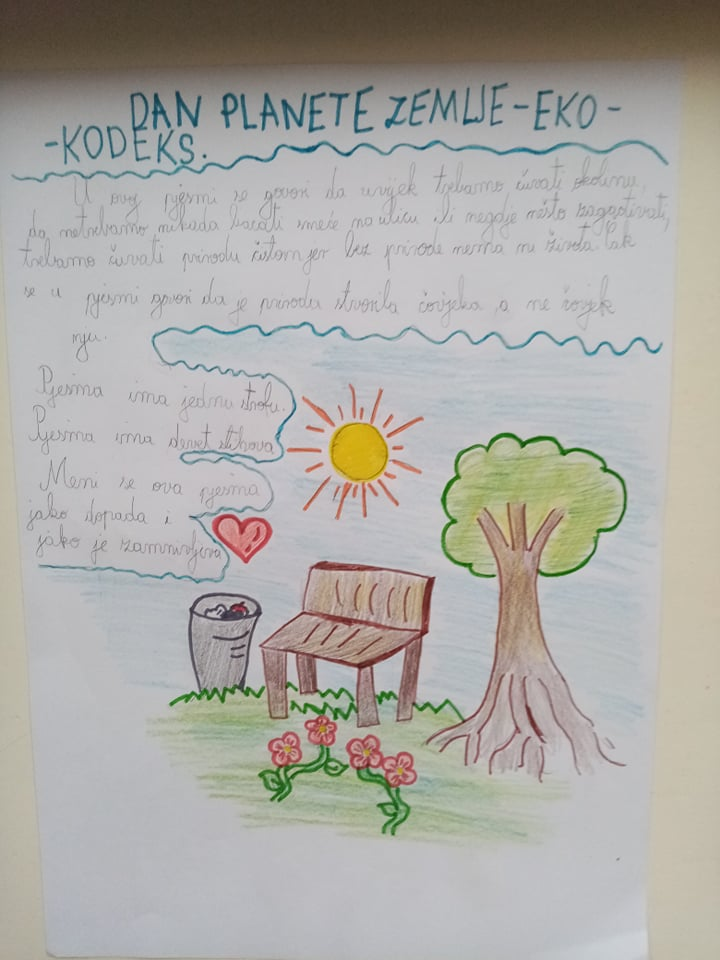 DAN PLANETE ZEMLJE-EKO-
-KODEKS.
U ovoj pjesmi se govori da uvijek trebamo čuvati okolinu,
da netrebamo nikada bacati smeće na ulicu ili negdje nešto zagađivati,
trebamo čuvati prirodu čistom jer bez prirode nema ni života. Čak
se u pjesmi govori da je priroda stvorila čovjeka, a ne čovjek
nju.
Pjesma ima jednu strofu.
Pjesma ima devet stihova
Meni se ova pjesma
jako dopada i
jako je zanimljiva